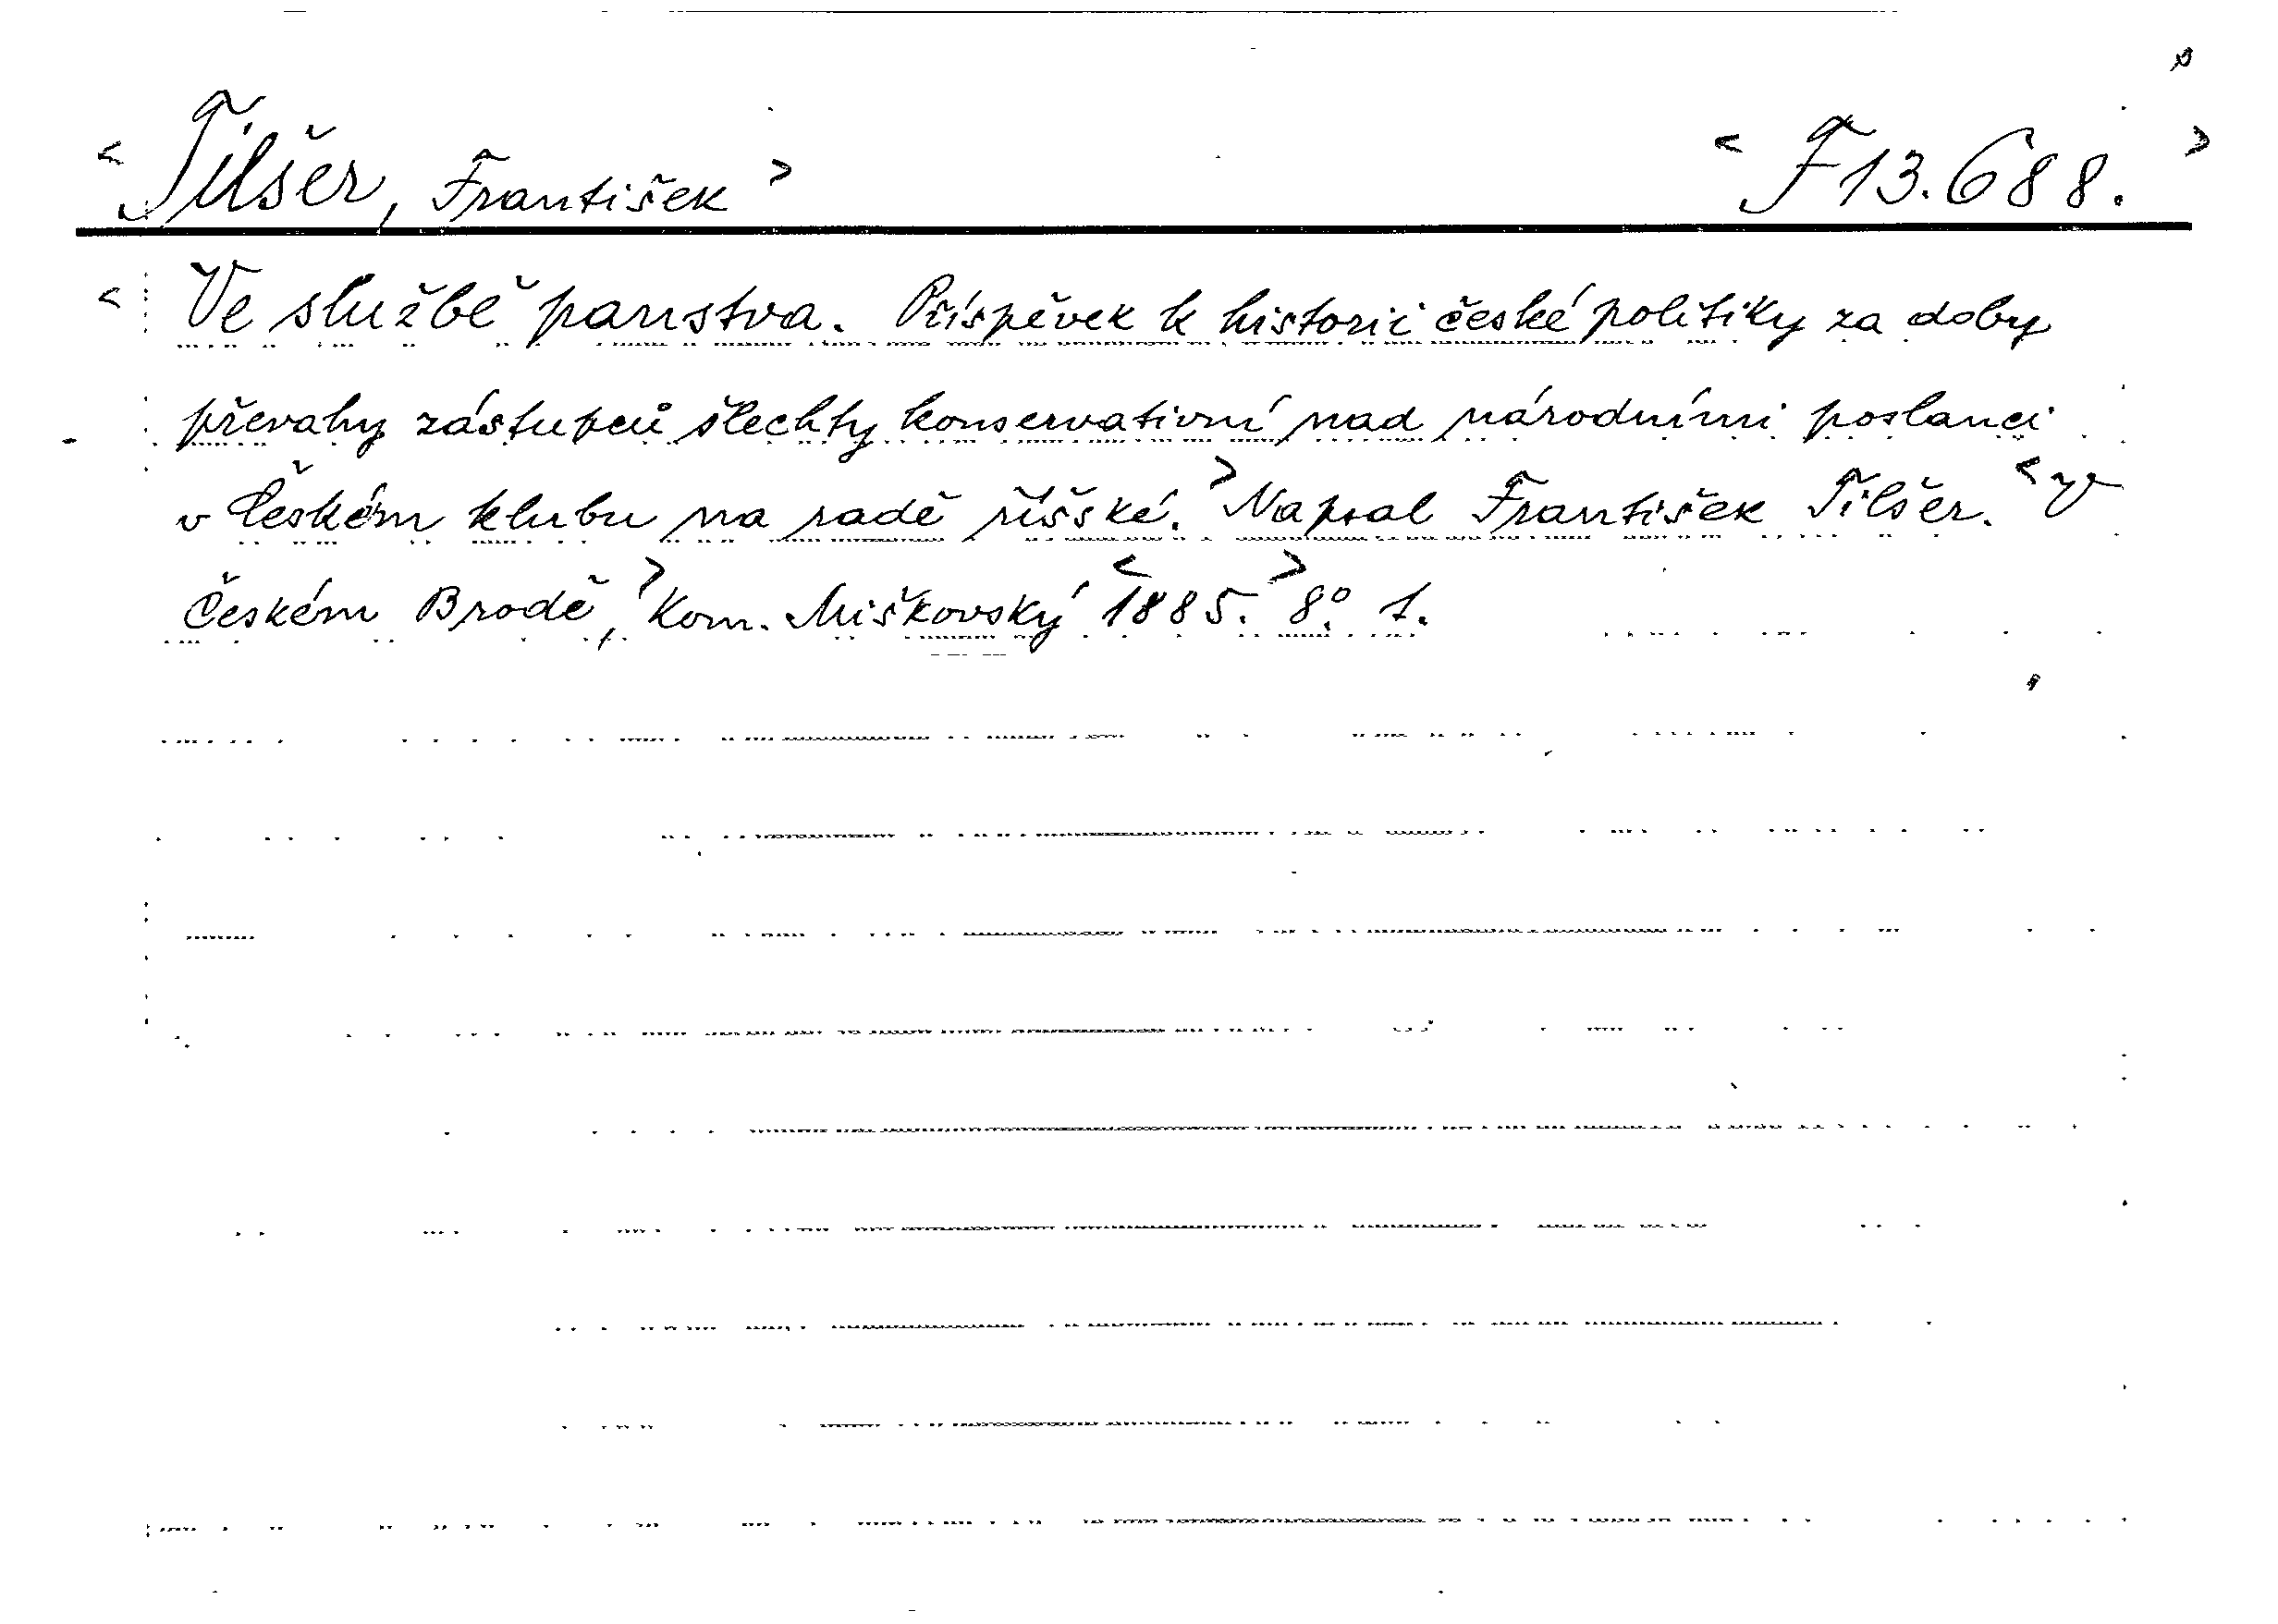 < Tilšer, František > < F 13.688. >
< Ve službě panstva. Příspěvek k historii české politiky za doby
převahy zástupců šlechty konservativní nad národními poslanci
v Českém klubu na radě říšské. > Napsal František Tilšer. < V
Českém Brodě, > Kom. Miškovský < 1885. > 8° 1.